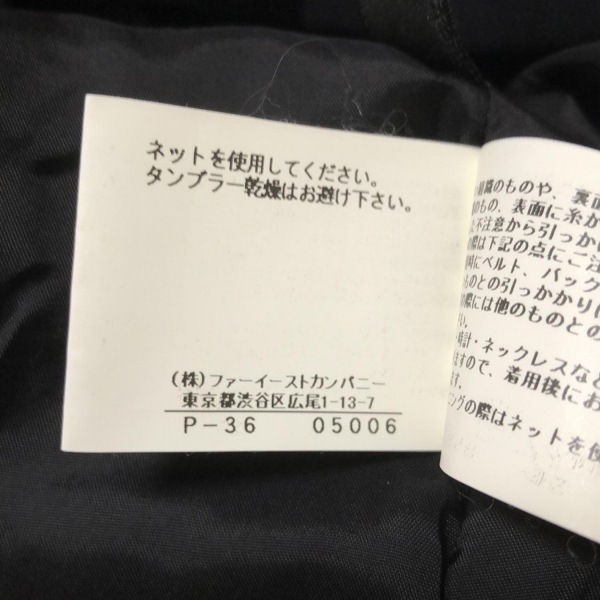 ネットを使用してください。
タンブラー乾燥はお避け下さい。
(株)ファーイーストカンパニー
東京都渋谷区広尾1-13-7
P-36 05006
組織のものや、裏面
のもの、表面に糸が
た不注意から引っか
際は下記の点にご注
時にベルト、バック
ものとの引っかかりに
際には他のものとの
い。
時計・ネックレスなど
ますので、着用後にお
ます。
ングの際はネットを使